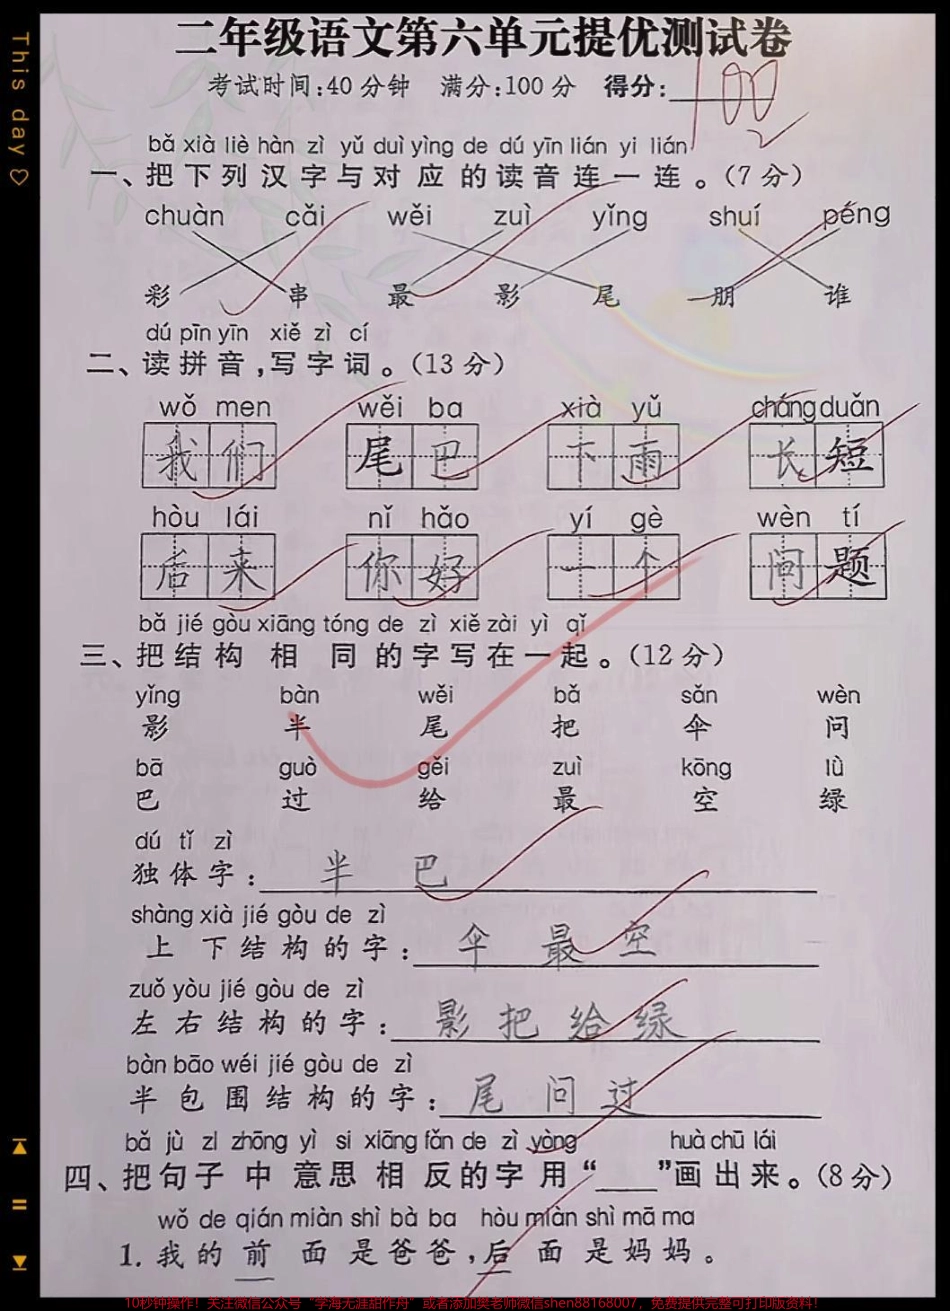 This day♡
二年级语文第六单元提优测试卷
考试时间:40分钟 满分:100分 得分: 100
bǎ xià liè hàn zì yǔ duì yìng de dú yīn lián yi lián
一、把下列汉字与对应的读音连一连。(7分)
chuàn cǎi wěi zuì yǐng shuí péng
彩 串 最 影 尾 朋 谁
dú pīn yīn xiě zì cí
二、读拼音,写字词。(13分)
wǒ men wěi ba xià yǔ cháng duǎn
我们 尾巴 下雨 长短
hòu lái nǐ hǎo yí gè wèn tí
后来 你好 一个 问题
bǎ jié gòu xiāng tóng de zì xiě zài yì qǐ
三、把结构相同的字写在一起。(12分)
yǐng bàn wěi bǎ sǎn wèn
影 半 尾 把 伞 问
bā guò gěi zuì kōng lǜ
巴 过 给 最 空 绿
dú tǐ zì
独体字: 半 巴
shàng xià jié gòu de zì
上下结构的字: 伞 最 空
zuǒ yòu jié gòu de zì
左右结构的字: 影 把 给 绿
bàn bāo wéi jié gòu de zì
半包围结构的字: 尾 问 过
bǎ jù zǐ zhōng yì si xiāng fǎn de zì yòng huà chū lái
四、把句子中意思相反的字用“____”画出来。(8分)
wǒ de qián miàn shì bà ba hòu miàn shì mā ma
1.我的前面是爸爸,后面是妈妈。
10秒钟操作！关注微信公众号“学海无涯甜作舟”或者添加樊老师微信shen88168007，免费提供完整可打印版资料！